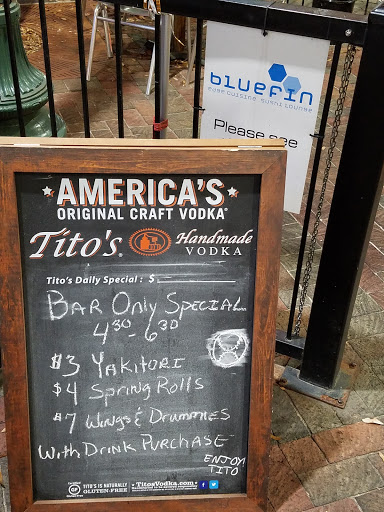 bluefin
fuse cuisine sushi lounge
Please see
AMERICA'S
ORIGINAL CRAFT VODKA®
Tito's® Handmade VODKA
Tito's Daily Special : $
BAR Only SPECIAL
4³⁰ - 6³⁰
$3 YAKITORI
$4 Spring Rolls
$7 Wings & Drummies
With Drink PURCHASE
ENJOY
TITO
TITO'S IS NATURALLY
GLUTEN-FREE
TitosVodka.com